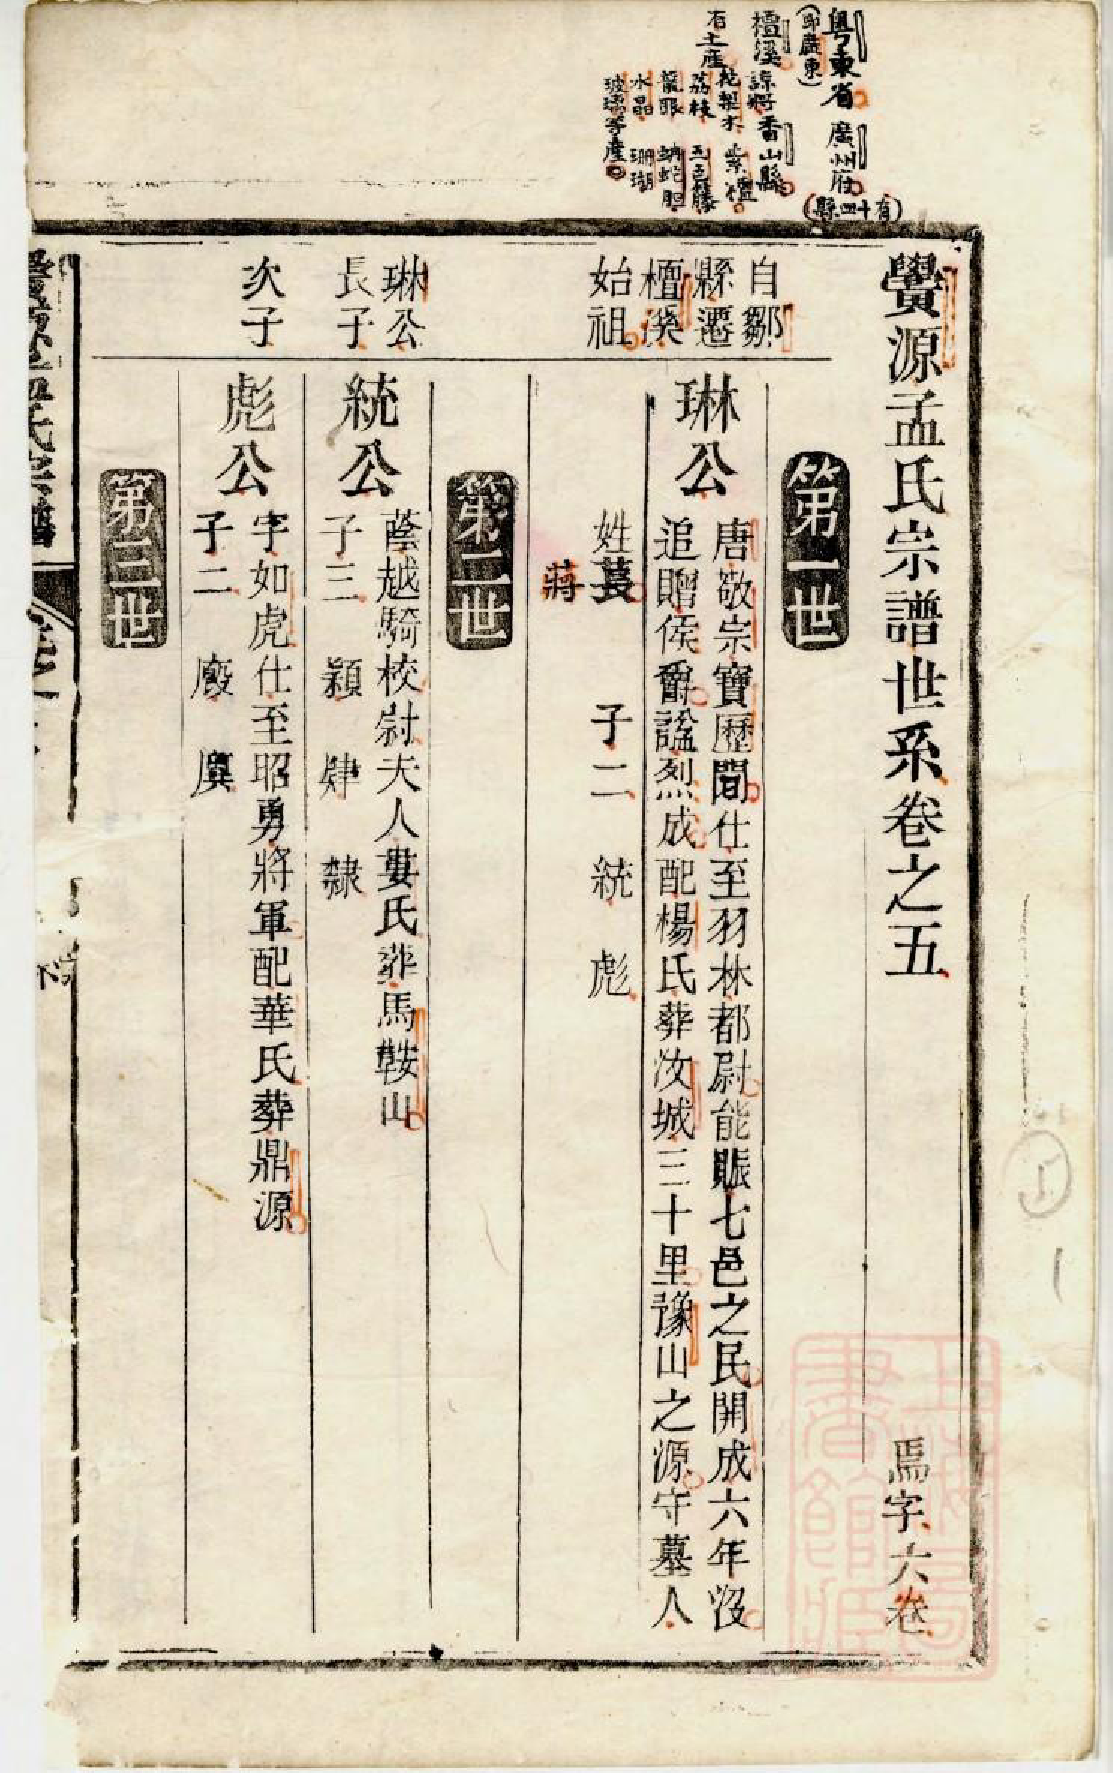 粤東省 廣州府
(即廣東)
(有十四縣)
檀溪 諒將香山縣
有土産
花梨木 紫檀
荔枝 五色藤
龍眼 蚺蛇胆
水晶 珊瑚
玻璃等産
黌源孟氏宗譜世系卷之五
焉字六卷
第一世
自鄒
縣遷
檀溪
始祖
琳公
唐敬宗寶歷間仕至羽林都尉能賑七邑之民開成六年沒
追贈侯爵諡烈成配楊氏葬汝城三十里豫山之源守墓人
姓 子二 統 彪
蔣
第二世
琳公
長子
統公
蔭越騎校尉夫人婁氏葬馬鞍山
子三 穎 肂 隸
次子
彪公
字如虎仕至昭勇將軍配華氏葬鼎源
子二 廄 廙
第三世
孟氏宗譜